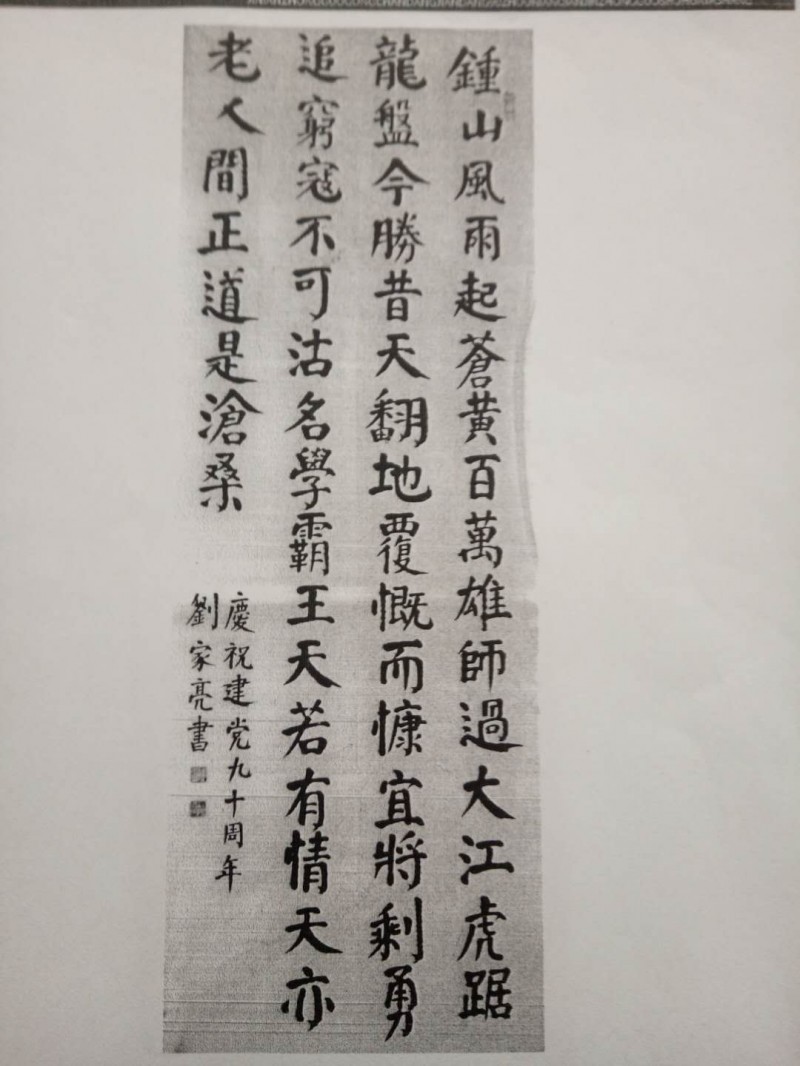 鍾山風雨起蒼黃百萬雄師過大江虎踞
龍盤今勝昔天翻地覆慨而慷宜將剩勇
追窮寇不可沽名學霸王天若有情天亦
老人間正道是滄桑
慶祝建党九十周年
劉家亮書